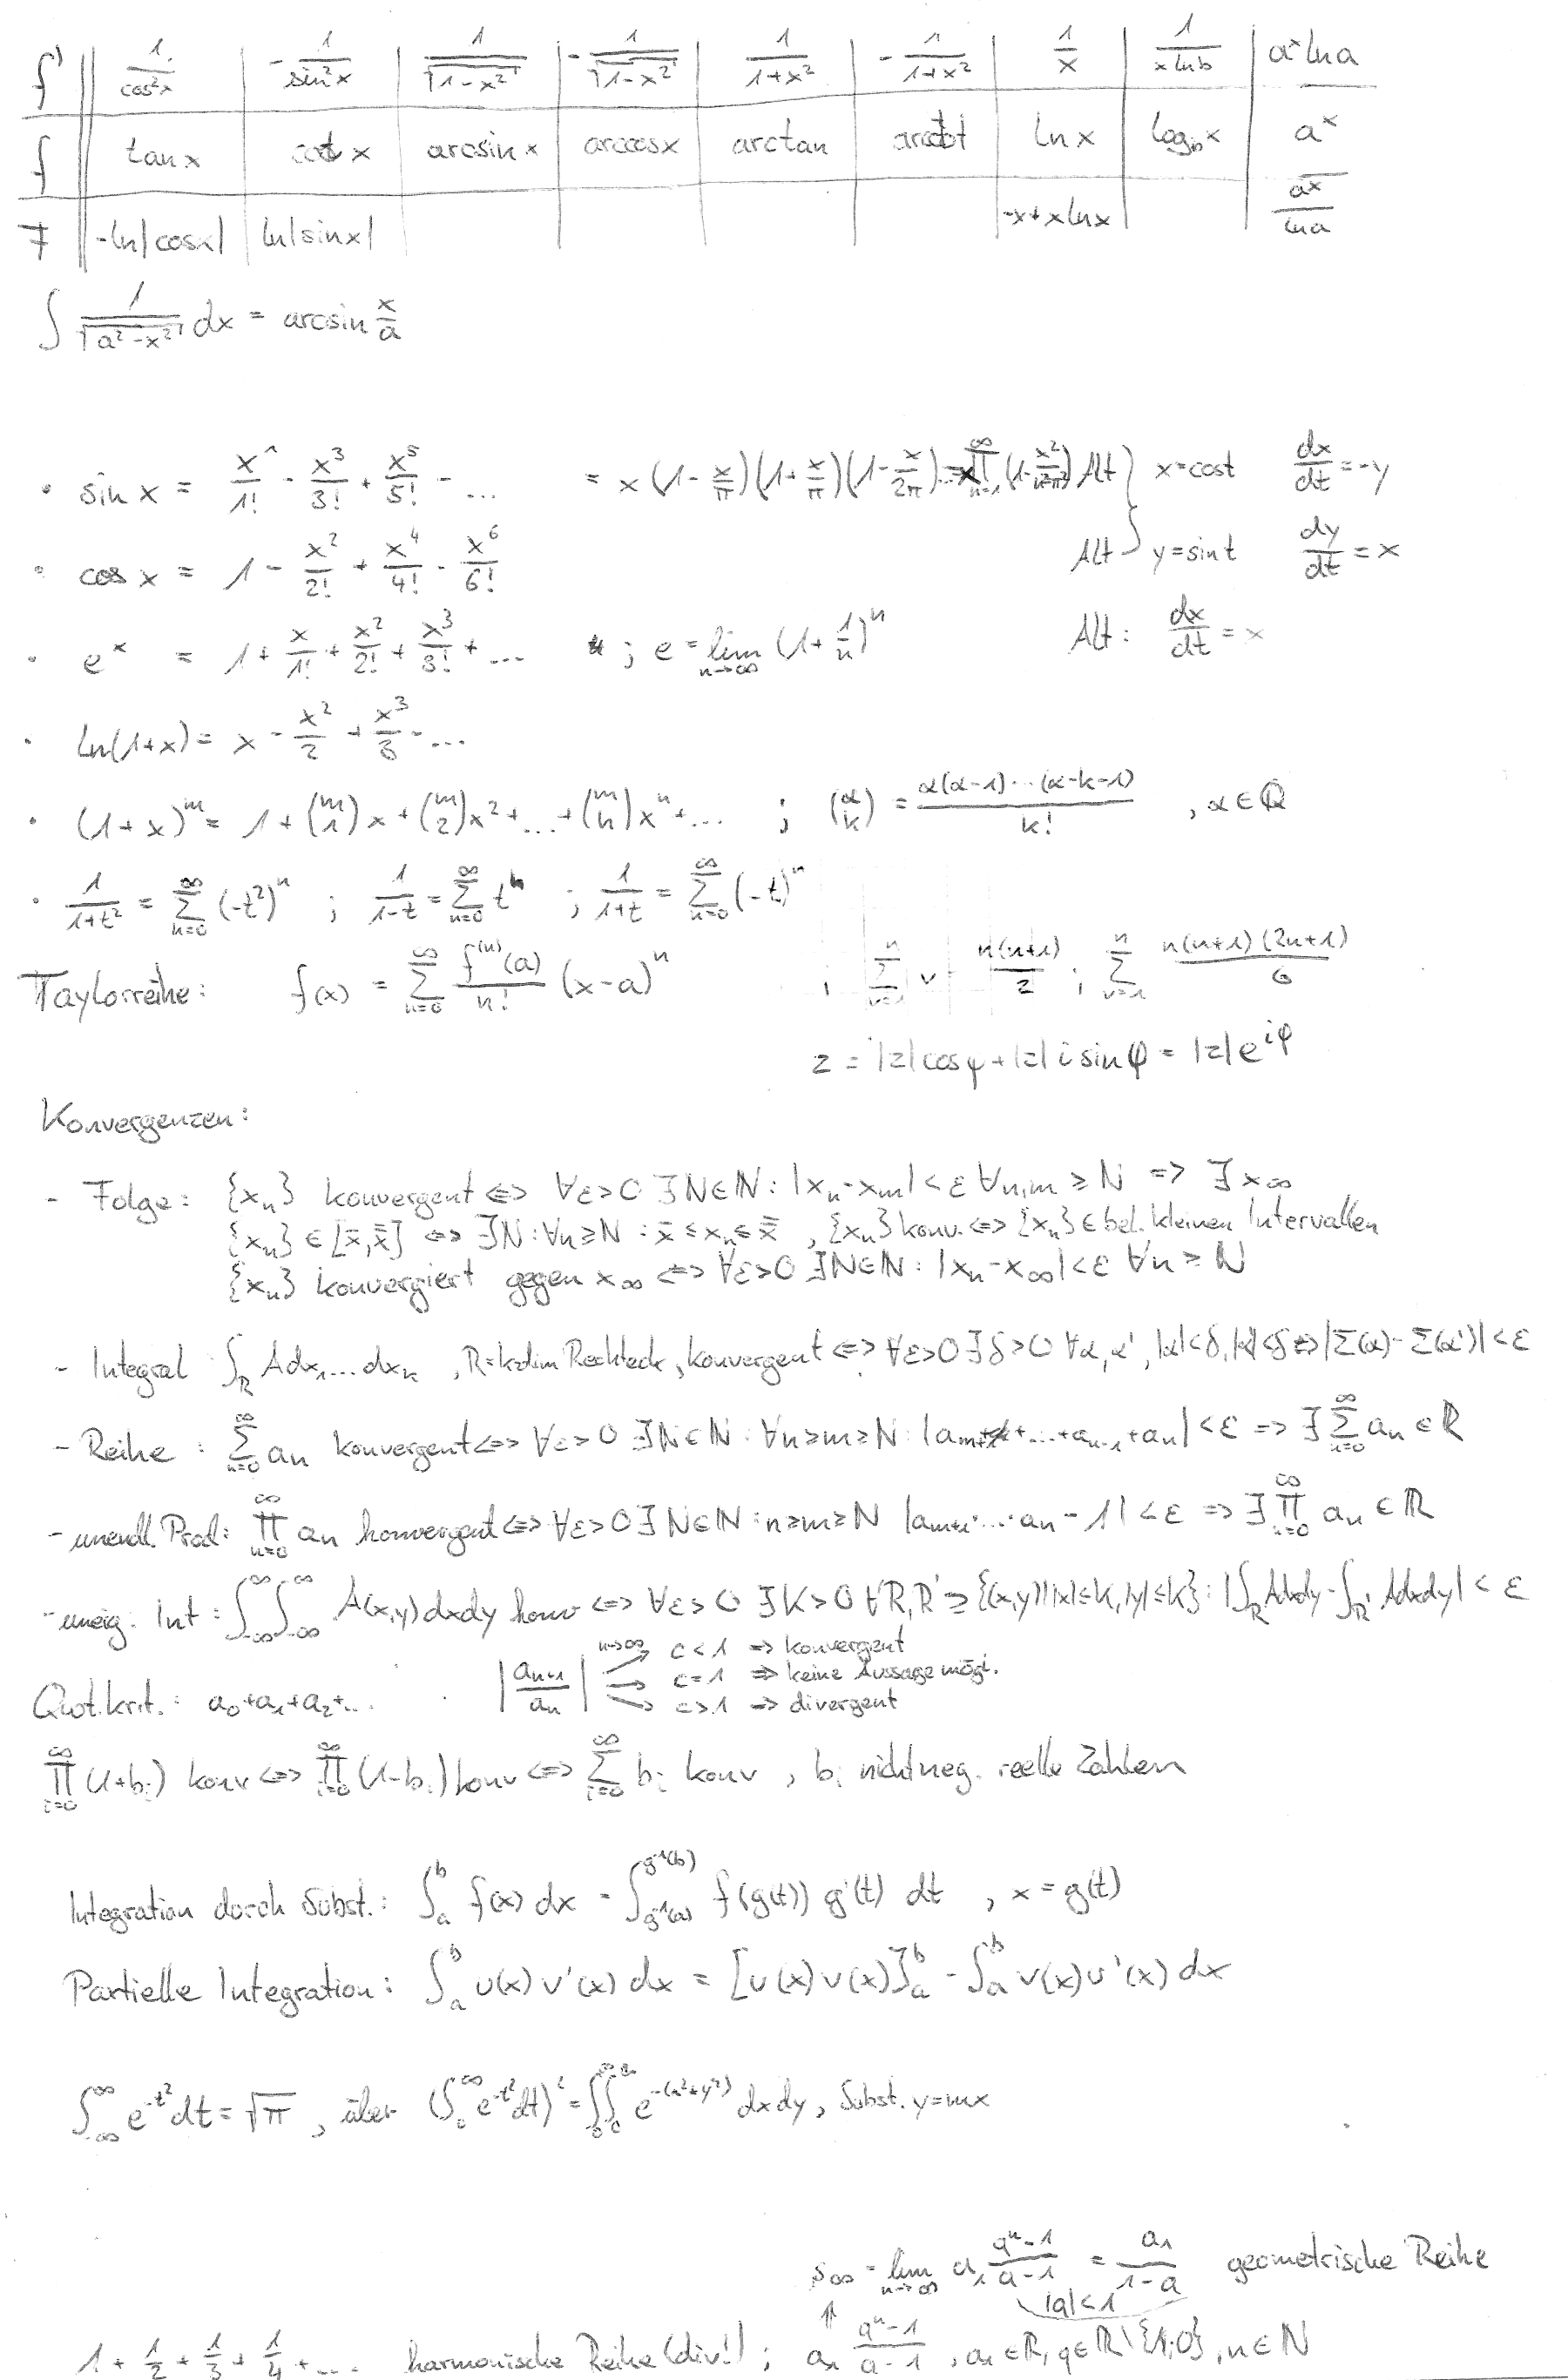 f' | 1/cos²x | -1/sin²x | 1/√(1-x²) | -1/√(1-x²) | 1/(1+x²) | -1/(1+x²) | 1/x | 1/(x ln b) | aˣ ln a
f | tan x | cot x | arcsin x | arccos x | arctan | arccot | ln x | log_b x | aˣ
F | -ln|cos x| | ln|sin x| | | | | | -x+x ln x | | aˣ/ln a
∫ 1/√(a²-x²) dx = arcsin x/a
• sin x = x¹/1! - x³/3! + x⁵/5! - ... = x (1-x/π)(1+x/π)(1-x/2π)...=x∏_{n=1}^∞ (1-x²/n²π²) Alt } x=cos t dx/dt = -y
• cos x = 1 - x²/2! + x⁴/4! - x⁶/6! Alt } y=sin t dy/dt = x
• eˣ = 1 + x/1! + x²/2! + x³/3! + ... ; e = lim_{n→∞} (1+1/n)ⁿ Alt: dx/dt = x
• ln(1+x) = x - x²/2 + x³/3 - ...
• (1+x)ᵐ = 1 + (m 1) x + (m 2) x² + ... + (m n) xⁿ + ... ; (α k) = α(α-1)···(α-k-1)/k! , α ∈ ℚ
• 1/(1+t²) = ∑_{n=0}^∞ (-t²)ⁿ ; 1/(1-t) = ∑_{n=0}^∞ tⁿ ; 1/(1+t) = ∑_{n=0}^∞ (-t)ⁿ
Taylorreihe: f(x) = ∑_{n=0}^∞ f⁽ⁿ⁾(a)/n! (x-a)ⁿ ; ∑_{ν=1}^n ν = n(n+1)/2 ; ∑_{ν=1}^n n(n+1)(2n+1)/6
z = |z| cos φ + |z| i sin φ = |z| e^{iφ}
Konvergenzen:
- Folge: {xₙ} konvergent ⇔ ∀ε>0 ∃N∈ℕ: |xₙ-xₘ|<ε ∀n,m ≥ N => ∃ x∞
{xₙ} ∈ [x̄, x̿] ⇔ ∃N: ∀n≥N : x̄ ≤ xₙ ≤ x̿ , {xₙ} konv. ⇔ {xₙ} ∈ bel. kleinen Intervallen
{xₙ} konvergiert gegen x∞ ⇔ ∀ε>0 ∃N∈ℕ: |xₙ-x∞|<ε ∀n ≥ N
- Integral ∫_R A dx₁...dxₖ , R=k-dim Rechteck, konvergent ⇔ ∀ε>0 ∃δ>0 ∀α,α', |α|<δ, |α'|<δ => |Σ(α)-Σ(α')| < ε
- Reihe : ∑_{n=0}^∞ aₙ konvergent ⇔ ∀ε>0 ∃N∈ℕ: ∀n≥m≥N: |aₘ₊₁+...+aₙ₋₁+aₙ| < ε => ∃ ∑_{n=0}^∞ aₙ ∈ ℝ
- unendl. Prod: ∏_{n=0}^∞ aₙ konvergent ⇔ ∀ε>0 ∃N∈ℕ : n≥m≥N |aₘ₊₁·...·aₙ - 1| < ε => ∃ ∏_{n=0}^∞ aₙ ∈ ℝ
- uneig. Int : ∫_{-∞}^∞ ∫_{-∞}^∞ A(x,y) dx dy konv ⇔ ∀ε>0 ∃K>0 ∀R,R' ⊇ {(x,y)| |x|≤K, |y|≤K}: |∫_R A dx dy - ∫_R' A dx dy| < ε
Quot.krit.: a₀+a₁+a₂+... |aₙ₊₁/aₙ| n→∞ c < 1 => konvergent
c = 1 => keine Aussage mögl.
c > 1 => divergent
∏_{i=0}^∞ (1+bᵢ) konv ⇔ ∏_{i=0}^∞ (1-bᵢ) konv ⇔ ∑_{i=0}^∞ bᵢ konv , bᵢ nichtneg. reelle Zahlen
Integration durch Subst.: ∫_a^b f(x) dx = ∫_{g⁻¹(a)}^{g⁻¹(b)} f(g(t)) g'(t) dt , x = g(t)
Partielle Integration: ∫_a^b u(x) v'(x) dx = [u(x) v(x)]_a^b - ∫_a^b v(x) u'(x) dx
∫_{-∞}^∞ e^{-t²} dt = √π , über (∫_0^∞ e^{-t²} dt)² = ∫_0^∞ ∫_0^∞ e^{-(x²+y²)} dx dy, Subst. y=mx
s∞ = lim_{n→∞} a₁ (qⁿ-1)/(q-1) = a₁/(1-q) geometrische Reihe
⇑ |q|<1
1 + 1/2 + 1/3 + 1/4 + ... harmonische Reihe (div!) ; a₁ (qⁿ-1)/(q-1) , a₁ ∈ ℝ, q ∈ ℝ\{1;0}, n ∈ ℕ